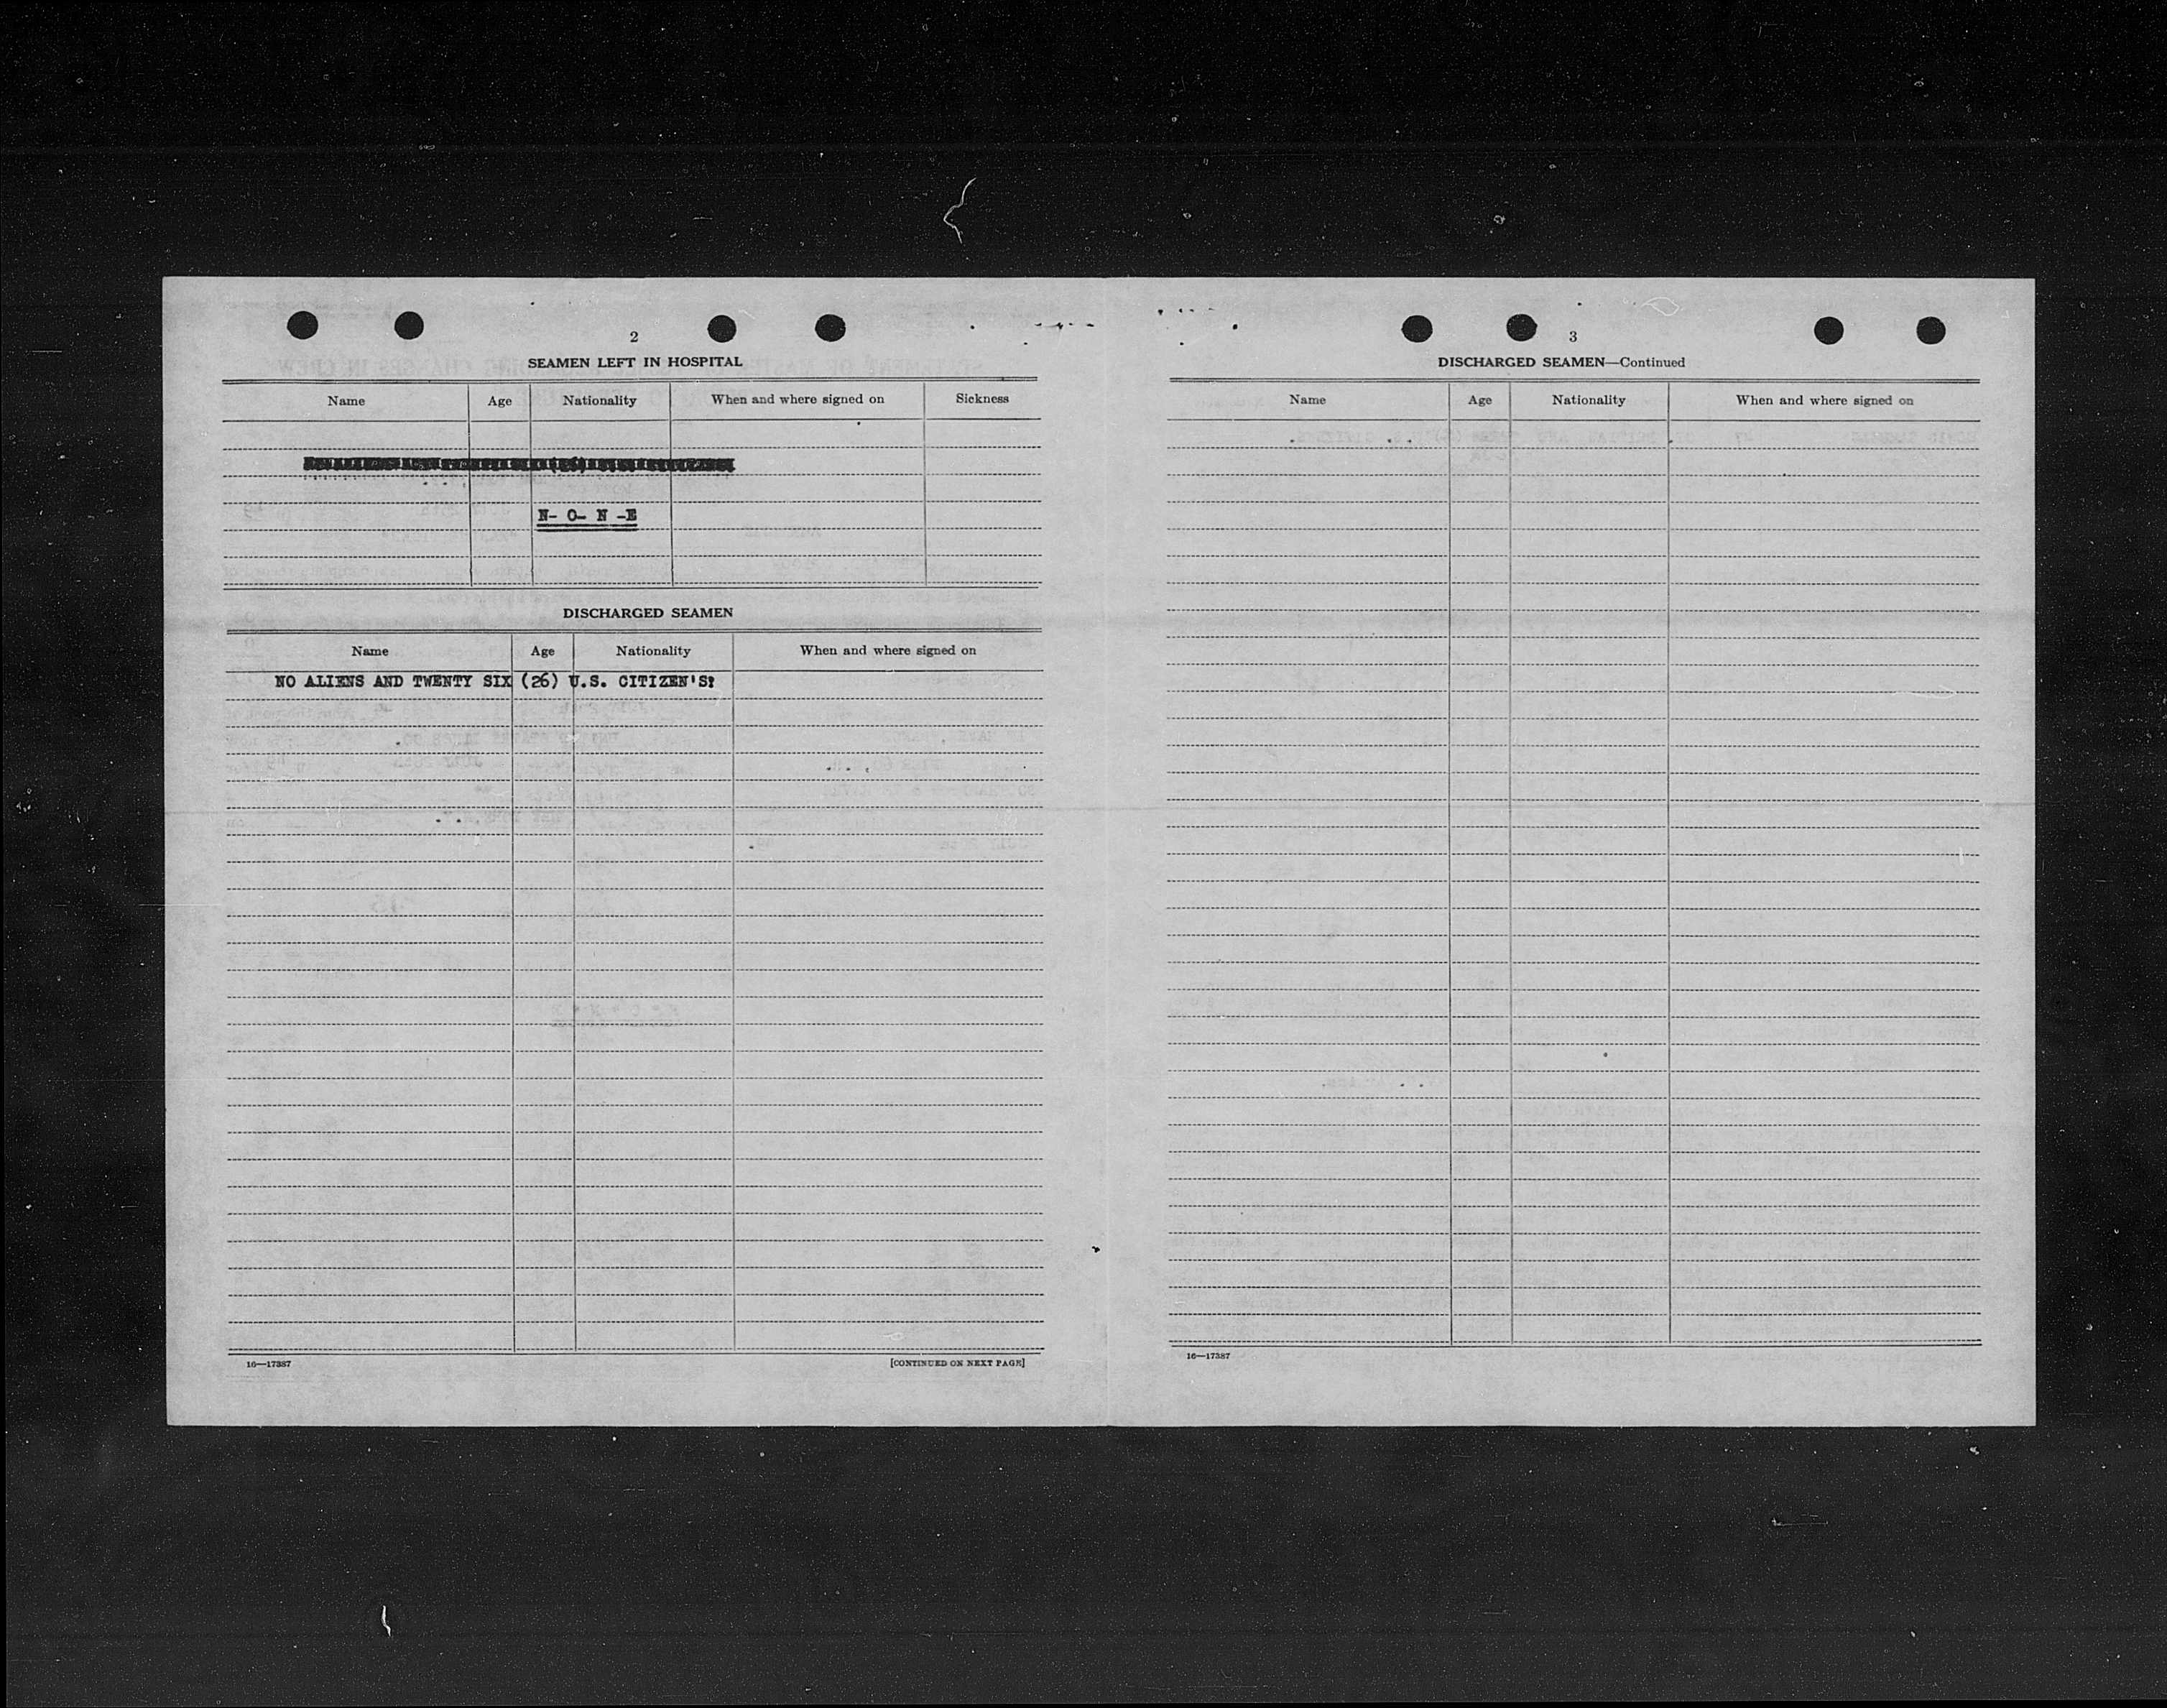 2
SEAMEN LEFT IN HOSPITAL
Name Age Nationality When and where signed on Sickness
N- O- N -E
DISCHARGED SEAMEN
Name Age Nationality When and where signed on
NO ALIENS AND TWENTY SIX (26) U.S. CITIZEN'S?
16—17387
[CONTINUED ON NEXT PAGE]
3
DISCHARGED SEAMEN—Continued
Name Age Nationality When and where signed on
16—17387